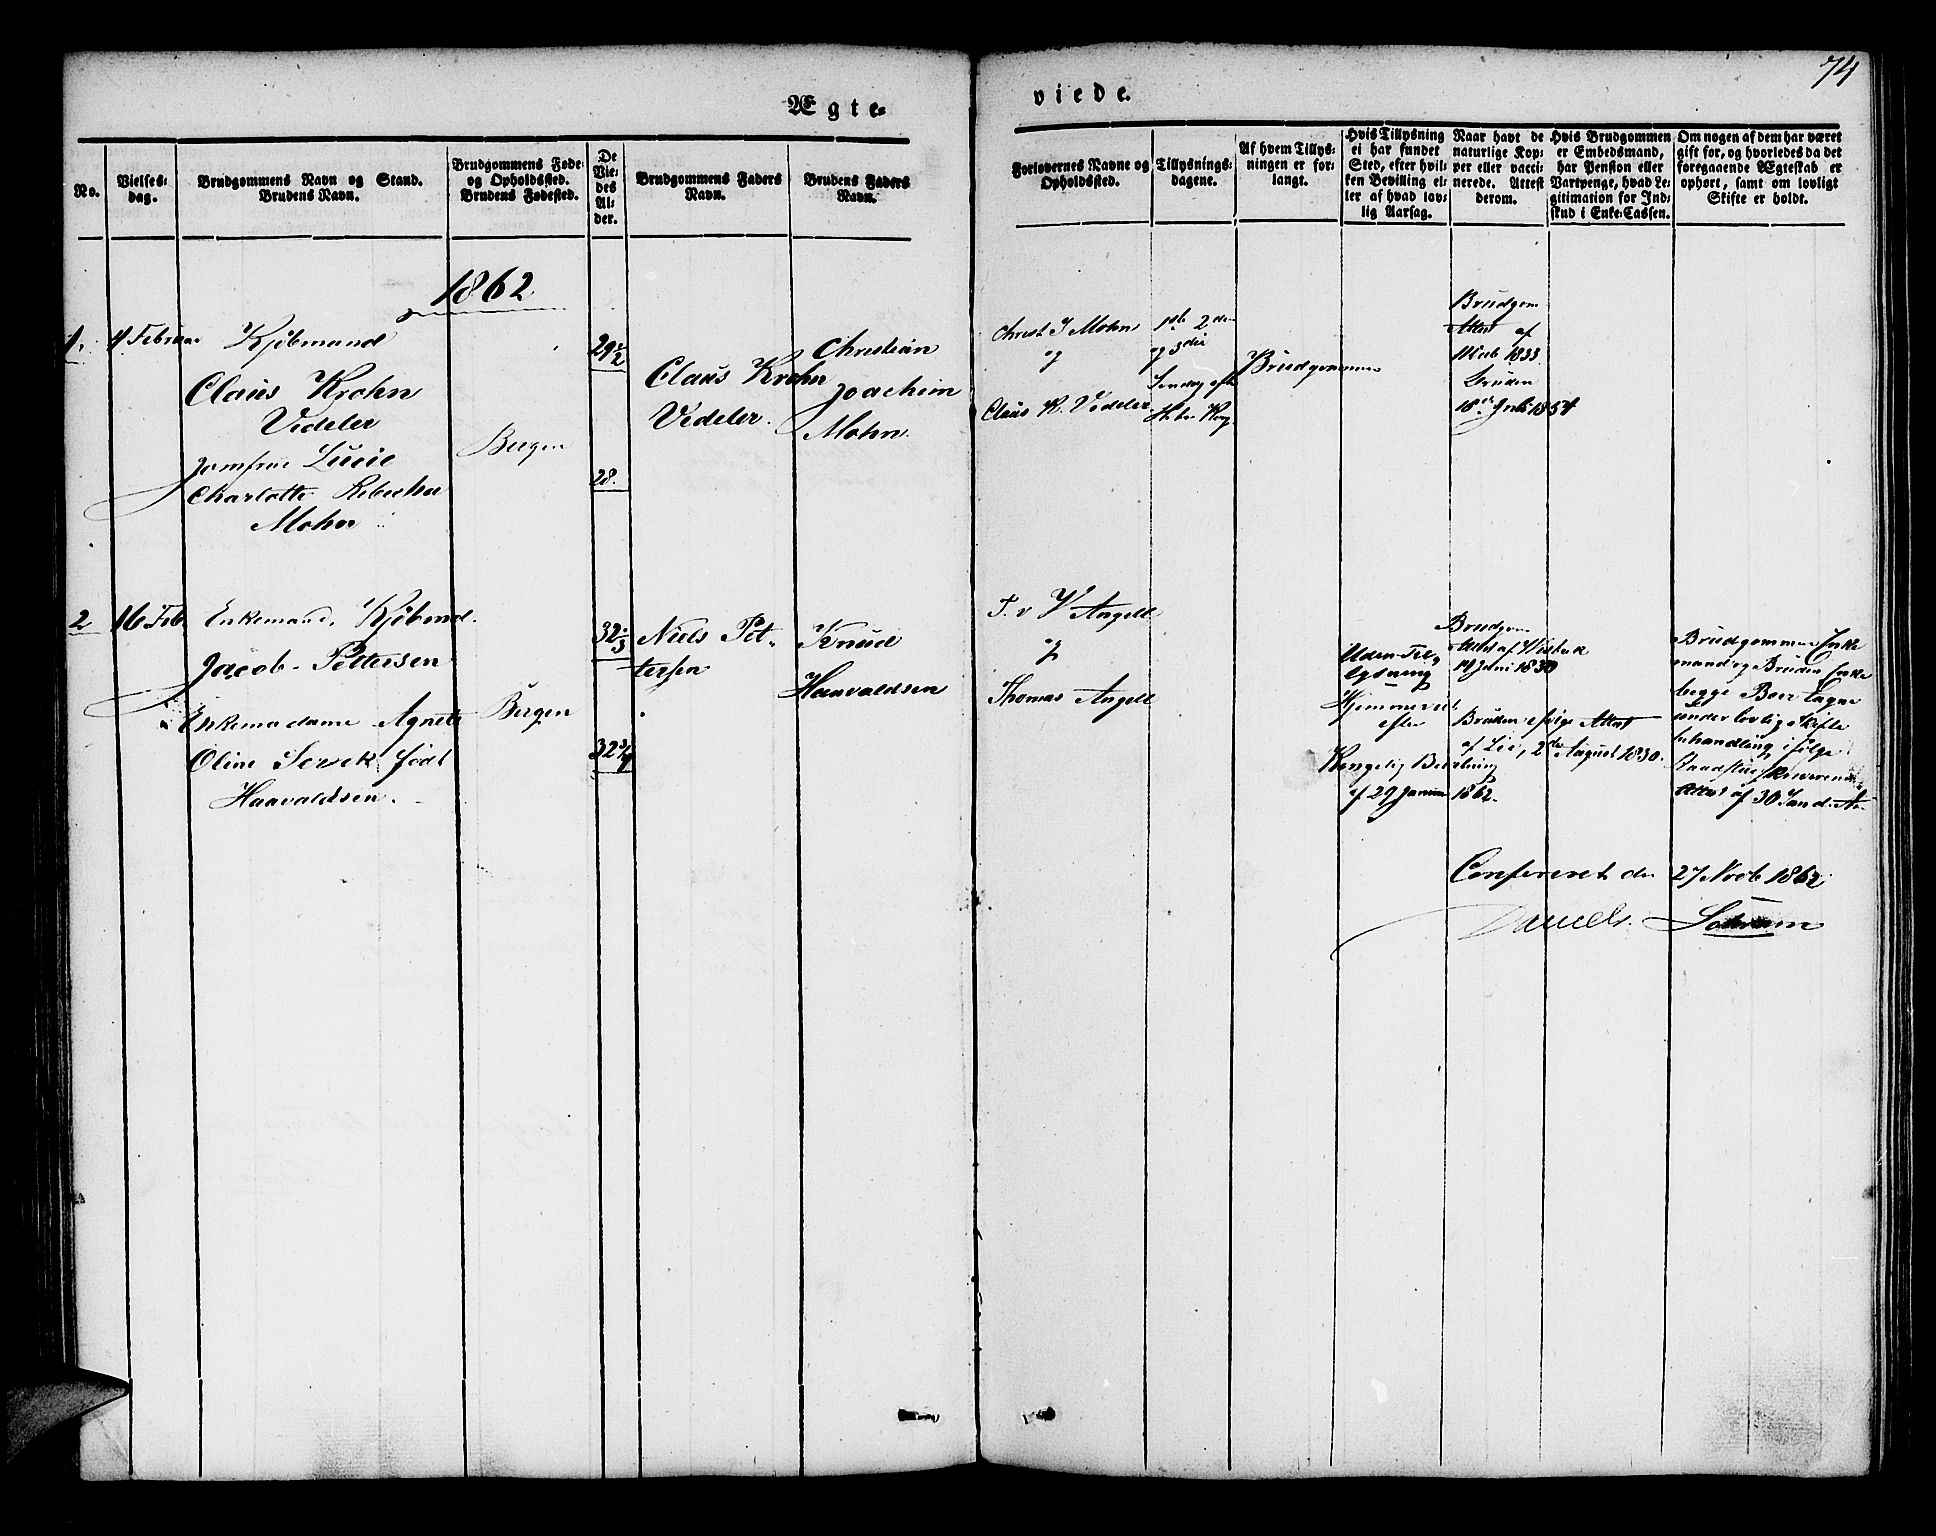 74
Ægte-
viede.
No.
Vielses-
dag.
Brudgommens Navn og Stand.
Brudens Navn.
Brudgommens Føde-
og Opholdssted.
Brudens Fødested.
De
Vie-
des
Al-
der.
Brudgommens Faders
Navn.
Brudens Faders
Navn.
Forlovernes Navne og
Opholdssted.
Tillysnings-
dagene.
Af hvem Tillys-
ningen er for-
langt.
Hvis Tillysning
ei har fundet
Sted, efter hvil-
ken Bevilling el-
ler af hvad lov-
lig Aarsag.
Naar havt de
naturlige Kop-
per eller vacci-
nerede. Attest
derom.
Hvis Brudgommen
er Embedsmand,
har Pension eller
Vartpenge, hvad Le-
gitimation for Ind-
skud i Enke-Cassen.
Om nogen af dem har været
gift før, og hvorledes da det
foregaaende Ægteskab er
ophørt, samt om lovligt
Skifte er holdt.
1862
1.
4 Februar
Kjøbmand
Claus Krohn
Vedeler
Jomfrue Lucie
Charlotte Rebecha
Mohn
Bergen
29 1/2
28.
Claus Krohn
Vedeler.
Christian
Joachim
Mohn.
Christ J Mohn
og
Claus K. Vedeler
1ste 2den
og 3die
Søndag efter
Hel. 3 Kong.
Brudgommen
Brudgom
Attest af
1833
Bruden
18de Juli 1854
2
16 Feb.
Enkemand, Kjøbmd.
Jacob Pettersen
Enkemadame Agnete
Oline født
Haavaldsen.
Bergen
32
32 3/4
Niels Pet-
tersen
Knud
Haavaldsen
T. v W Angell
og
Thomas Angell
Uden Til-
lysning
Hjemmeviet
efter
Kongelig Bevilning
af 29 Januar 1862.
Brudgom
Attest af
14 Juni 1830
Bruden ifølge Attest
af Lie, 2den August 1830.
Brudgommen Enke
mand og Bruden Enke
begge Boer tagne
under lovlig Skifte
behandling ifølge
Raadstueskriverens
Attest af 30 Jan d. A.
Confereret den 27 Novb 1862